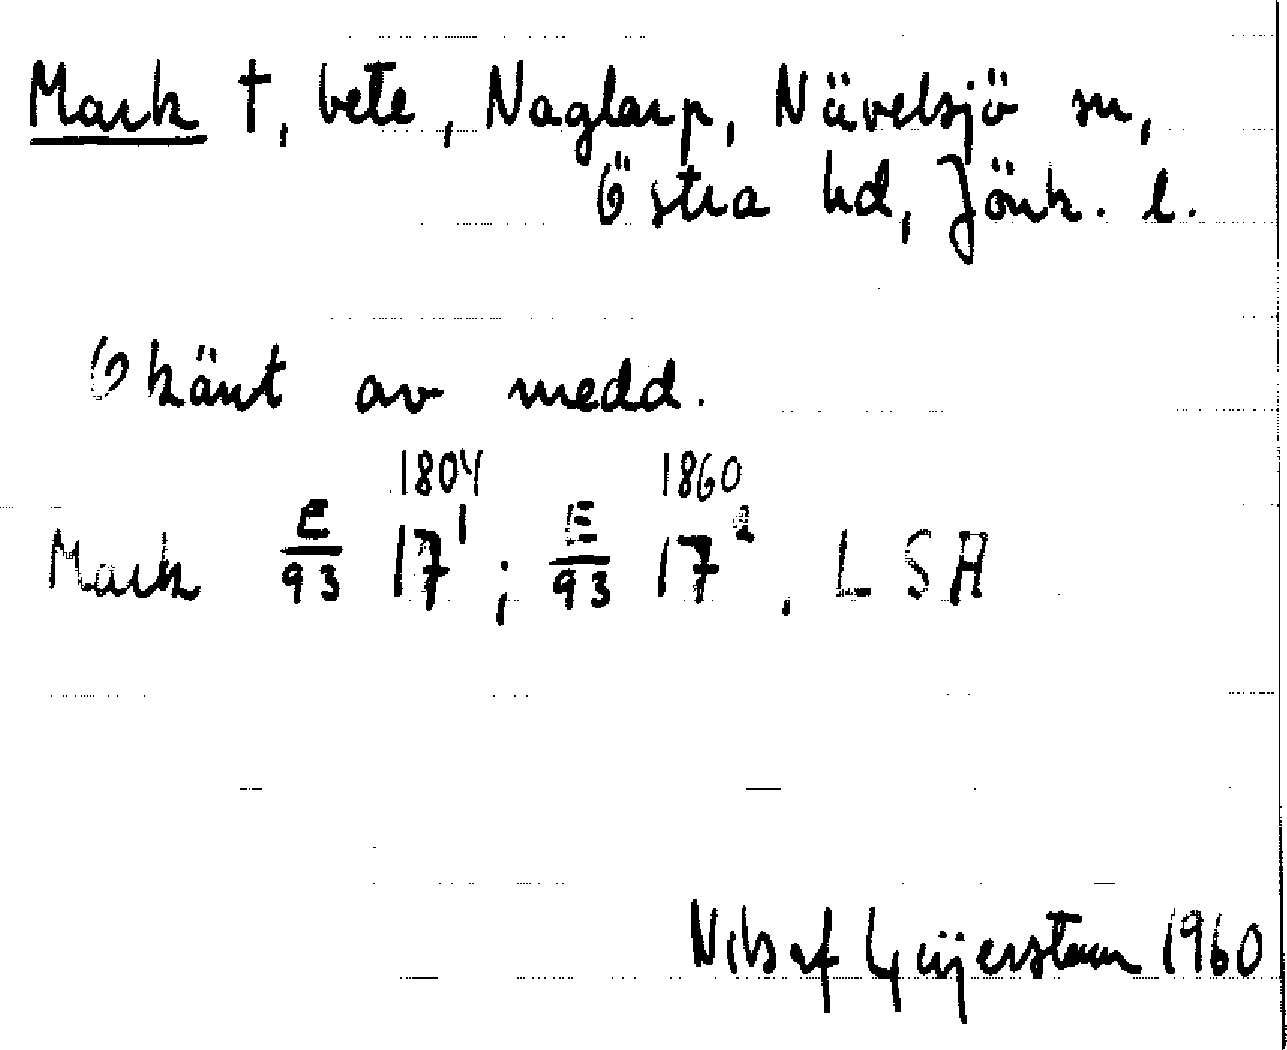 Mark †, bete, Naglarp, Nävelsjö sn,
Östra hd, Jönk. l.
Okänt av medd.
1804 1860
Mark E/93 17¹; E/93 17², LSA
Nils af Geijerstam 1960